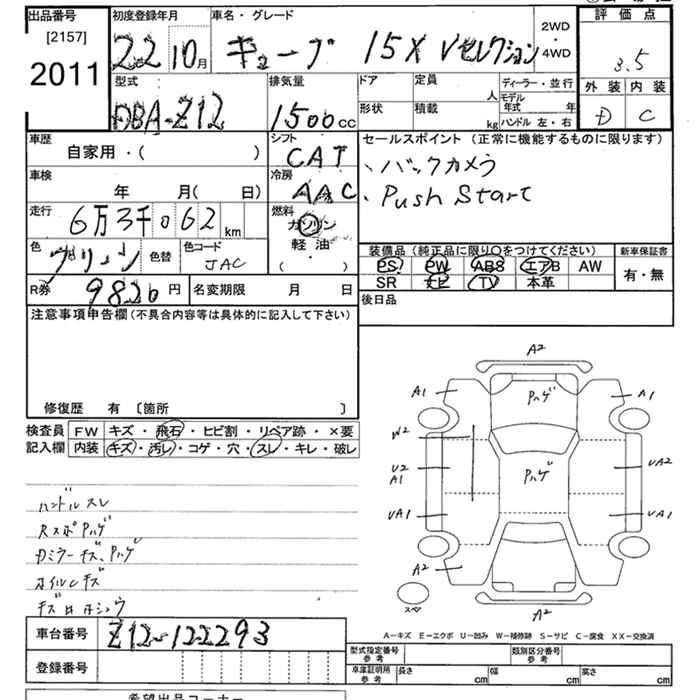 出品番号 初度登録年月 車名・グレード 2WD ・ 4WD 評価点
[2157] 22 10月 キューブ 15X Vセレクション 3.5
2011
型式 排気量 ドア 定員 人 ディーラー・並行 外装 内装
DBA-Z12 1500cc 形状 積載 kg モデル年式 年 D C
ハンドル 左・右
車歴 シフト セールスポイント (正常に機能するものに限ります)
自家用・( ) CAT 、バックカメラ
車検 冷房 、Push Start
年 月( 日) AAC
走行 燃料
6万3千062km ガソリン
色 色替 色コード 軽油 装備品 (純正品に限り○をつけてください) 新車保証書
JAC ( ) PS PW ABS エアB AW 有・無
R券 9820円 名変期限 月 日 SR ナビ TV 本革
注意事項申告欄(不具合内容等は具体的に記入して下さい) 後日品
修復歴 有 〔箇所 〕
検査員 FW キズ・飛石・ヒビ割・リペア跡・×要
記入欄 内装 キズ・汚レ・コゲ・穴・スレ・キレ・破レ
A2
A1 Pハゲ A1
W2
U2 Pハゲ UA2
A1
UA1 UA1
A2
スペ A2
ハンドルスレ
RスポPハゲ
Dミラーキズ、Pハゲ
ホイルキズ
A−キズ E−エクボ U−凹み W−補修跡 S−サビ C−腐食 XX−交換済
車台番号 Z12-122293
型式指定番号 参考 類別区分番号 参考
登録番号 車庫証明用 参考 長さ cm 幅 cm 高さ cm
希望出品コーナー